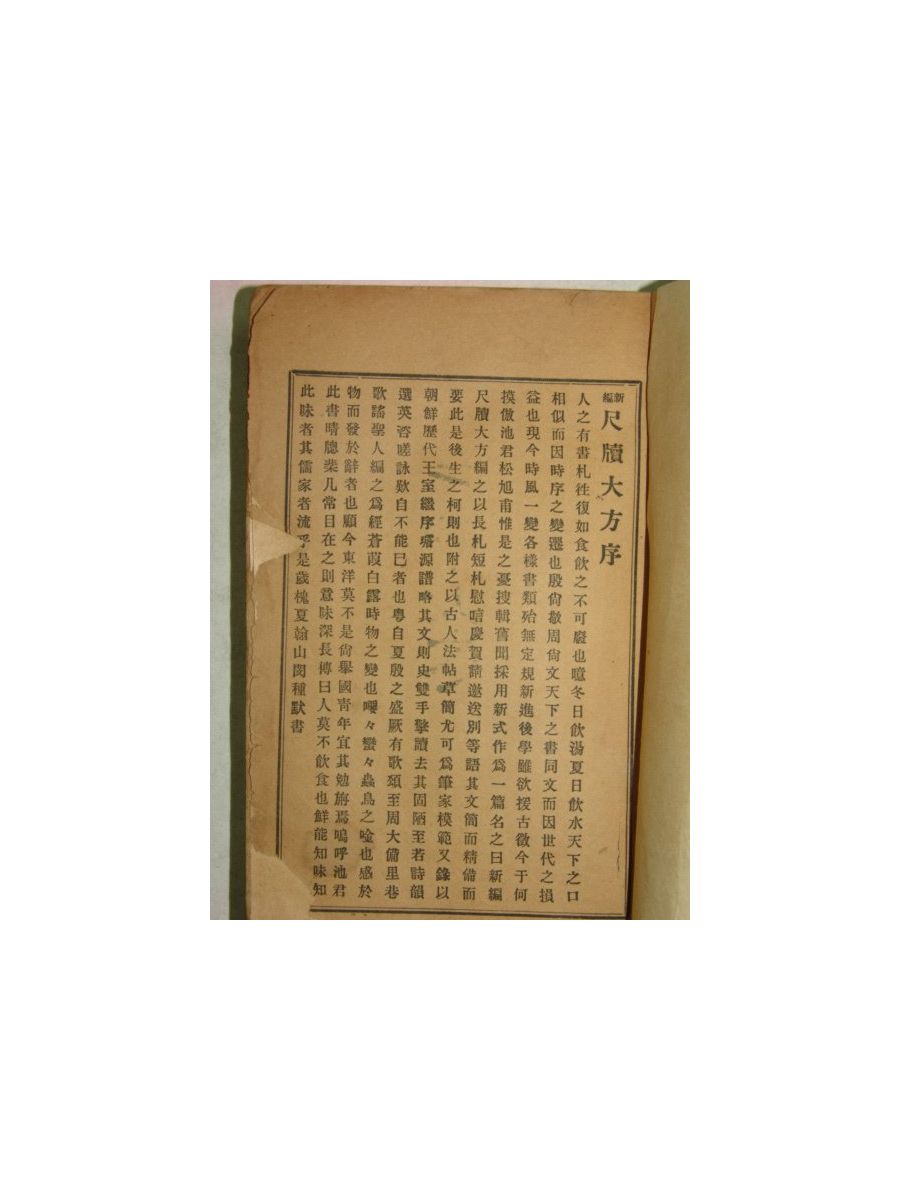 新編尺牘大方序
人之有書札徃復如食飮之不可廢也噫冬日飮湯夏日飮水天下之口
相似而因時序之變遷也殷尙敬周尙文天下之書同文而因世代之損
益也現今時風一變各樣書類殆無定規新進後學雖欲援古徵今于何
摸倣池君松旭甫惟是之憂搜輯舊聞採用新式作爲一篇名之曰新編
尺牘大方編之以長札短札慰唁慶賀請邀送別等語其文簡而精備而
要此是後生之柯則也附之以古人法帖草簡尤可爲筆家模範又錄以
朝鮮歷代王室繼序璿源譜略其文則史雙手擎讀去其固陋至若詩韻
選英咨嗟詠歎自不能已者也粤自夏殷之盛厥有歌頌至周大備里巷
歌謠聖人編之爲經蒼葭白露時物之變也嚶々蠻々蟲鳥之唫也感於
物而發於辭者也顧今東洋莫不是尙舉國靑年宜其勉旃焉嗚呼池君
此書晴牕棐几常目在之則意味深長傳曰人莫不飮食也鮮能知味知
此味者其儒家者流乎是歲槐夏翰山閔種默書